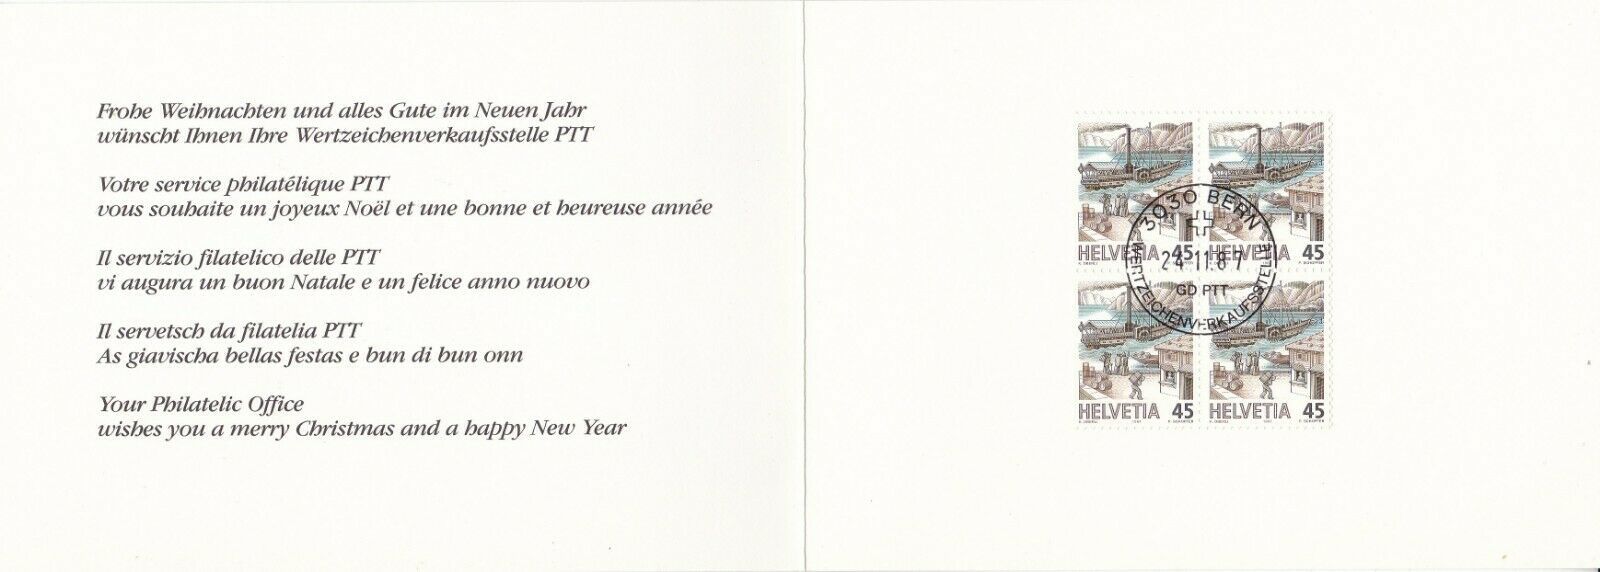 Frohe Weihnachten und alles Gute im Neuen Jahr
wünscht Ihnen Ihre Wertzeichenverkaufsstelle PTT
Votre service philatélique PTT
vous souhaite un joyeux Noël et une bonne et heureuse année
Il servizio filatelico delle PTT
vi augura un buon Natale e un felice anno nuovo
Il servetsch da filatelia PTT
As giavischa bellas festas e bun di bun onn
Your Philatelic Office
wishes you a merry Christmas and a happy New Year
3030 BERN
HELVETIA 45
HELVETIA 45
24.11.87
GD PTT
WERTZEICHENVERKAUFSSTELLE
HELVETIA 45
HELVETIA 45